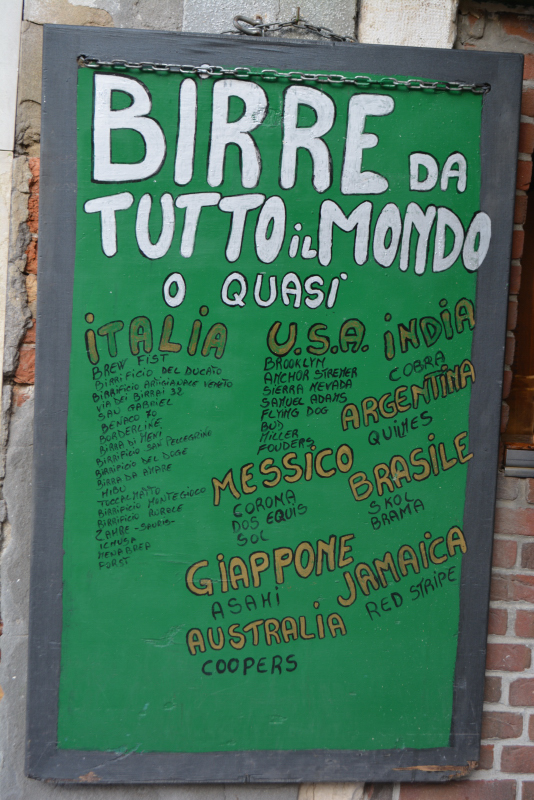 BIRRE DA
TUTTO iL MONDO
O QUASi
iTALiA
BREW FIST
BIRRIFICIO DEL DUCATO
BIRRIFICIO ARTIGIANALE VENETO
VIA DEI BIRRAI 32
SAN GABRIEL
BENACO 70
BORDERLINE
BIRRA DI MENI
BIRRIFICIO SAN PELLEGRINO
BIRRIFICIO DEL DOGE
BIRRA DA AMARE
MIBU
TOCCALMATTO
BIRRIFICIO MONTEGIOCO
BIRRIFICIO RURALE
ZAHRE-SAURIS-
ICHUSA
MENABREA
FORST
U.S.A.
BROOKLYN
ANCHOR STREMER
SIERRA NEVADA
SAMUEL ADAMS
FLYING DOG
BUD
MILLER
FOUDERS
iNDiA
COBRA
ARGENTiNA
QUILMES
MESSiCO
CORONA
DOS EQUIS
SOL
BRASiLE
SKOL
BRAMA
GiAPPONE
ASAHI
JAMAiCA
RED STRIPE
AUSTRALiA
COOPERS